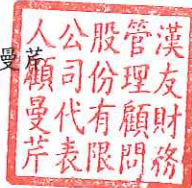 漢友財務
管理顧問
股份有限
公司代表
人顧曼芹
曼芹